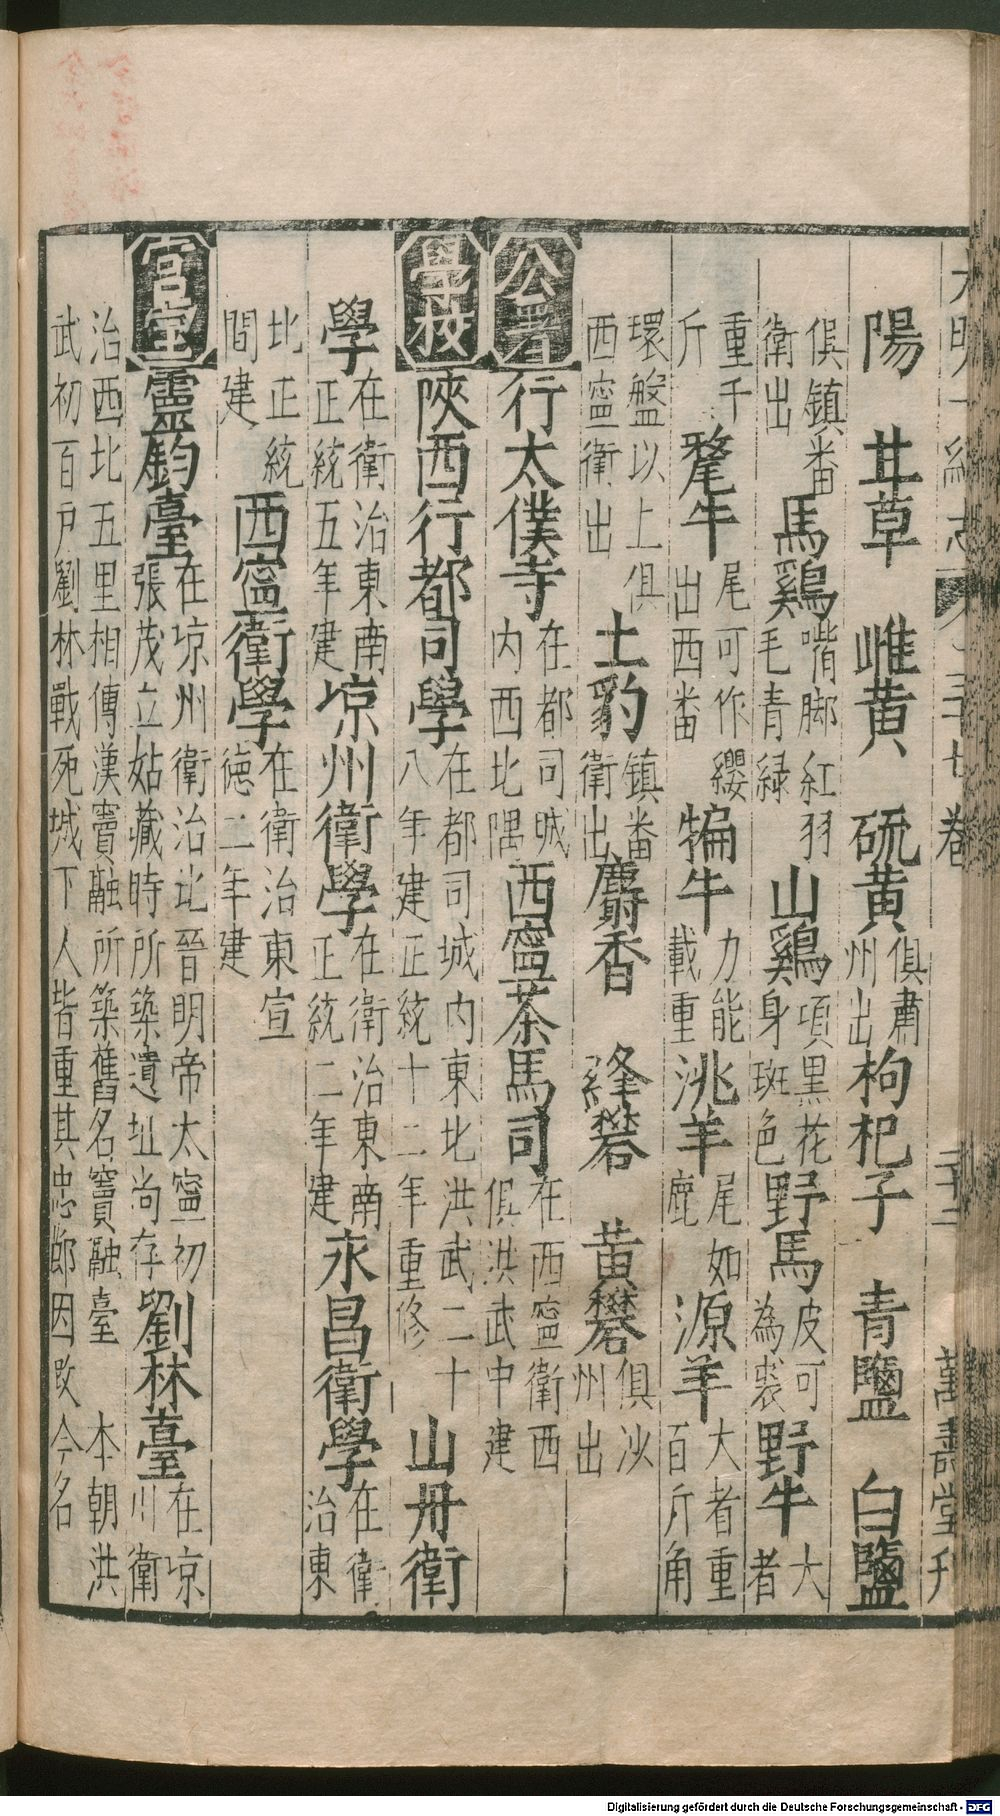 大明一統志 三十七卷 二十二 萬壽堂刋
陽 甘草 雌黄 硫黄俱肅州出枸杞子 青鹽 白鹽
俱鎮番衛出馬鷄嘴脚紅羽毛青緑山鷄項黒花身斑色野馬皮可為裘野牛大者
重千斤犛牛尾可作纓出西番犏牛力能載重洮羊尾如鹿源羊大者重百斤角
環盤以上俱西寧衛出土豹鎮番衛出麝香 絳礬 黄礬俱沙州出
公署行太僕寺在都司城内西北隅西寧茶馬司在西寧衛西俱洪武中建
學校陜西行都司學在都司城内東北洪武二十八年建正統十二年重修 山丹衛
學在衛治東南正統五年建凉州衛學在衛治東南正統二年建永昌衛學在衛治東
北正統間建 西寧衛學在衛治東宣徳二年建
宫室靈鈞臺在凉州衛治北晉明帝太寧初張茂立姑藏時所築遺址尚存劉林臺在凉川衛
治西北五里相傳漢竇融所築舊名竇融臺 本朝洪武初百戸劉林戰死城下人皆重其忠郷因改今名
Digitalisierung gefördert durch die Deutsche Forschungsgemeinschaft - DFG